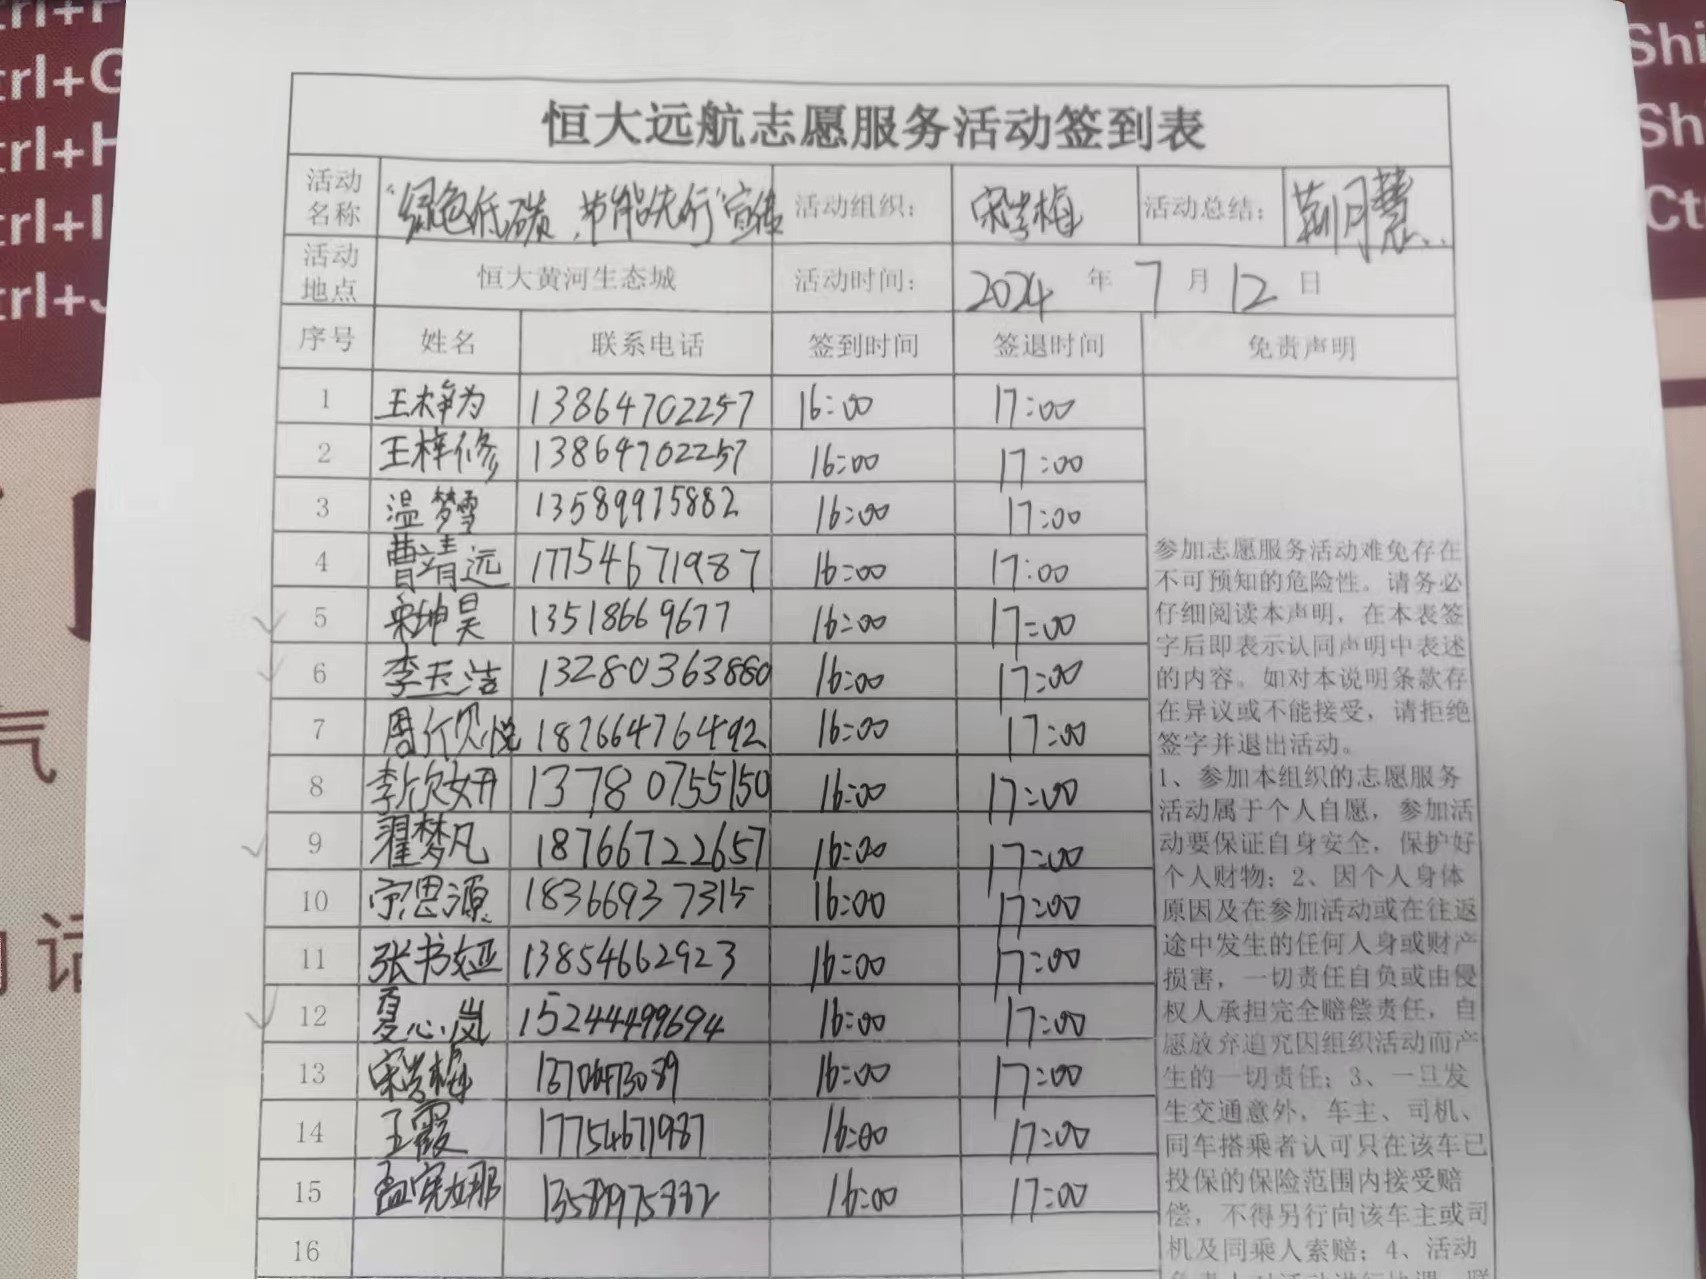 恒大远航志愿服务活动签到表
活动名称 “绿色低碳，节能先行”宣传 活动组织： 宋崇梅 活动总结： 荆月慧
活动地点 恒大黄河生态城 活动时间： 2024 年 7 月 12 日
序号 姓名 联系电话 签到时间 签退时间 免责声明
1 王梓为 13864702257 16:00 17:00
2 王梓修 13864702257 16:00 17:00
3 温梦雪 13589975882 16:00 17:00
4 曹靖远 17754671987 16:00 17:00
5 宋坤昊 13518669677 16:00 17:00
6 李玉洁 13280363880 16:00 17:00
7 周行贝悦 18766476492 16:00 17:00
8 李欣妍 13780755150 16:00 17:00
9 翟梦凡 18766722657 16:00 17:00
10 宁思源 18366937315 16:00 17:00
11 张书娅 13854662923 16:00 17:00
12 夏心岚 15244499694 16:00 17:00
13 宋崇梅 13706473089 16:00 17:00
14 王霞 17754671987 16:00 17:00
15 孟宪娜 13589975882 16:00 17:00
16
参加志愿服务活动难免存在
不可预知的危险性。请务必
仔细阅读本声明，在本表签
字后即表示认同声明中表述
的内容。如对本说明条款存
在异议或不能接受，请拒绝
签字并退出活动。
1、参加本组织的志愿服务
活动属于个人自愿，参加活
动要保证自身安全，保护好
个人财物；2、因个人身体
原因及在参加活动或在往返
途中发生的任何人身或财产
损害，一切责任自负或由侵
权人承担完全赔偿责任，自
愿放弃追究因组织活动而产
生的一切责任；3、一旦发
生交通意外，车主、司机、
同车搭乘者认可只在该车已
投保的保险范围内接受赔
偿，不得另行向该车主或司
机及同乘人索赔；4、活动